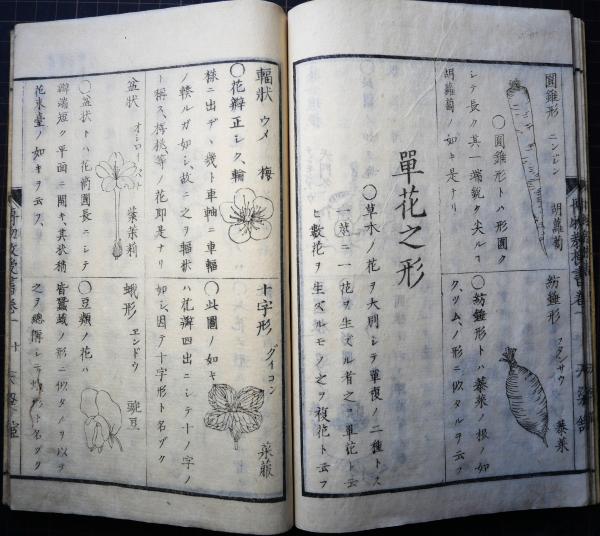 圓錐形 ニンジン 胡蘿蔔
○圓錐形トハ形圓ク
シテ長ク其一端銳ク尖ルヿ
胡蘿蔔ノ如キ是ナリ
紡錘形 フダンサウ 菾菜
○紡錘形トハ菾菜ノ根ノ如
クツムノ形ニ似タルヲ云フ
單花之形
○草木ノ花ヲ大別シテ單復ノ二種トス
一莖ニ一花ヲ生ズル者之ヲ單花ト云
ヒ數花ヲ生ズルモノ之ヲ複花ト云フ
輻狀 ウメ 梅
○花瓣正シク輪
樣ニ出デヽ幾ト車軸ニ車輻
ノ輳ルガ如シ故ニ之ヲ輻狀
ト稱ス梅桃等ノ花即是ナリ
十字形 ダイコン 萊菔
○此圖ノ如キ
ハ花瓣四出ニシテ十ノ字ノ
如シ因テ十字形ト名ヅク
盆狀 オシロイバナ 紫茉莉
○盆狀トハ花筩圓長ニシテ
瓣端短ク平面ニ開キ其狀
花束臺ノ如キヲ云フ
蛾形 エンドウ 豌豆
○豆類ノ花ハ
皆蠶蛾ノ形ニ似タルヲ以テ
之ヲ總稱シテ蛾形ト名ヅク